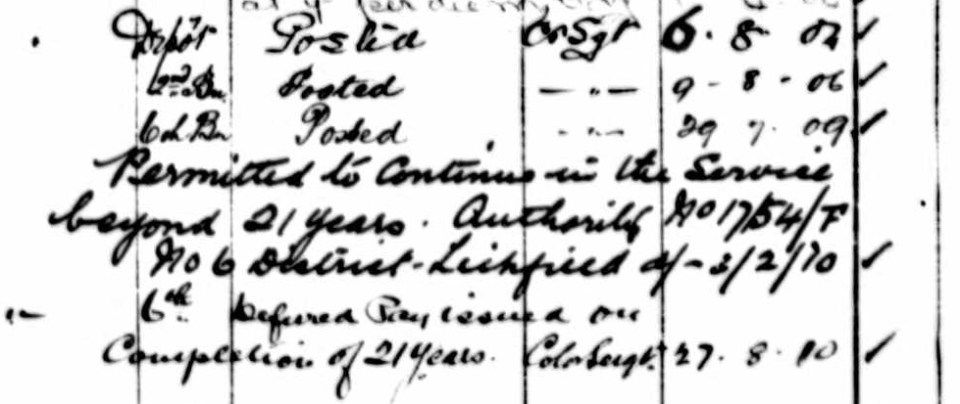 Depôt Posted Cr Sgt 6. 8. 04 ✓
2nd Bn Posted — " — 9 - 8 - 06 ✓
6th Bn Posted - " - 29 7. 09 ✓
Permitted to Continue in the Service
beyond 21 years. Authority No 17/54/F
No 6 District - Lichfield d/- 3/2/10 ✓
6th Deferred Pay issued on
Completion of 21 Years. Color Sergt. 27. 8. 10 ✓